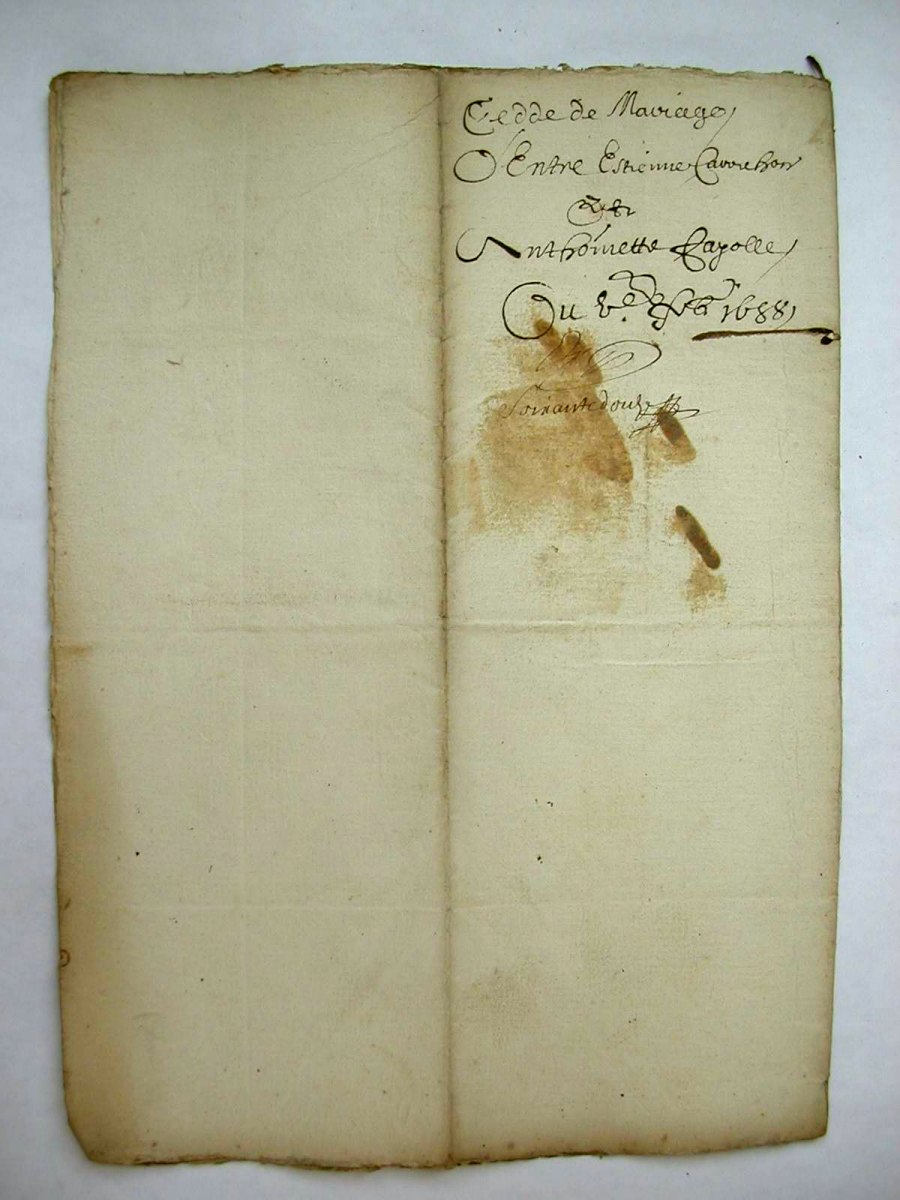 Cedde de Mariage
D'Entre Estienne Cavouhon
Et
Anthoinette Capolle
Du v.e 1688
Soixante douze